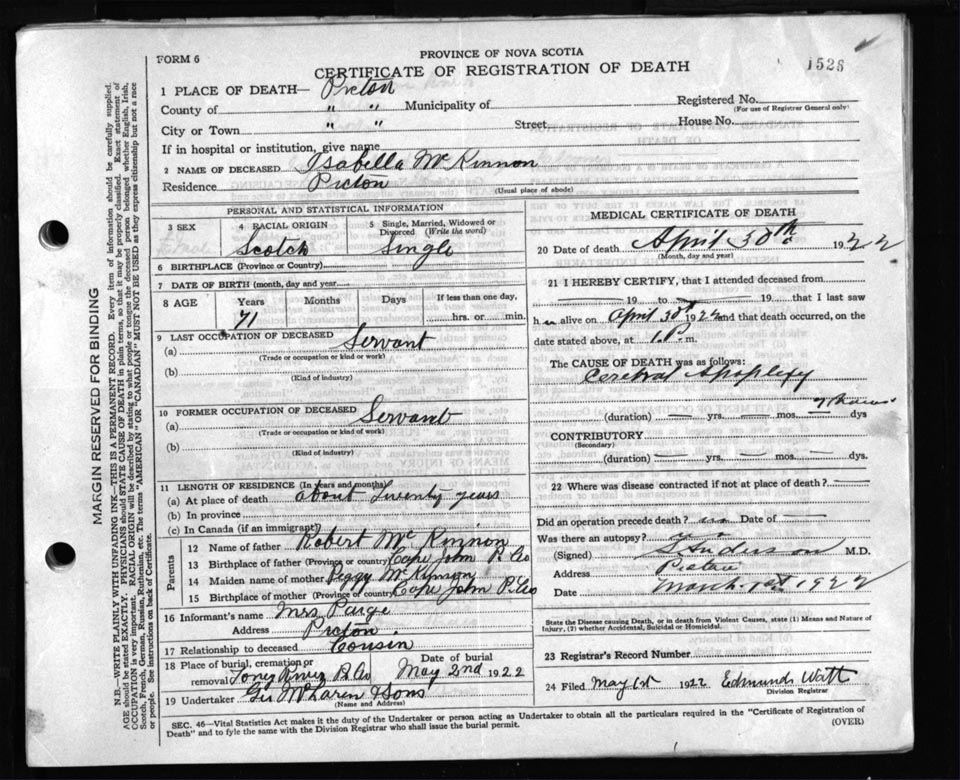 FORM 6
PROVINCE OF NOVA SCOTIA
CERTIFICATE OF REGISTRATION OF DEATH
1526
1 PLACE OF DEATH— Pictou
County of " " Municipality of
Registered No.
(For use of Registrar General only)
City or Town " " Street
House No.
If in hospital or institution, give name
2 NAME OF DECEASED Isabella McKinnon
Residence Pictou
(Usual place of abode)
PERSONAL AND STATISTICAL INFORMATION
3 SEX
4 RACIAL ORIGIN
Scotch
5 Single, Married, Widowed or Divorced (Write the word)
Single
6 BIRTHPLACE (Province or Country)
7 DATE OF BIRTH (month, day and year)
8 AGE Years Months Days If less than one day,
71 hrs. or min.
9 LAST OCCUPATION OF DECEASED
(a) Servant
(Trade or occupation or kind or work)
(b)
(Kind of industry)
10 FORMER OCCUPATION OF DECEASED
(a) Servant
(Trade or occupation or kind of work)
(b)
(Kind of industry)
11 LENGTH OF RESIDENCE (in Years and months)
(a) At place of death about Twenty years
(b) In province
(c) In Canada (if an immigrant)
Parents
12 Name of father Robert McKinnon
13 Birthplace of father (Province or country) Cape John P. Co
14 Maiden name of mother Peggy
15 Birthplace of mother (Province or country) Cape John P. Co
16 Informant's name Mrs Paige
Address Pictou
17 Relationship to deceased Cousin
18 Place of burial, cremation or removal Toney River P. Co
Date of burial May 2nd 1922
19 Undertaker Geo McLaren & Sons
(Name and Address)
MEDICAL CERTIFICATE OF DEATH
20 Date of death April 30th 1922
(Month, day and year)
21 I HEREBY CERTIFY, that I attended deceased from
19 to 19 that I last saw
h alive on April 30 1922 and that death occurred, on the
date stated above, at 1 P. m.
The CAUSE OF DEATH was as follows:
Cerebral Apoplexy
(duration) yrs. mos. 7 hours dys
CONTRIBUTORY
(Secondary)
(duration) yrs. mos. dys.
22 Where was disease contracted if not at place of death?
Did an operation precede death? no Date of
Was there an autopsy?
(Signed) M.D.
Address Pictou
Date March 1st 1922
State the Disease causing Death, or in death from Violent Causes, state (1) Means and Nature of
Injury, (2) whether Accidental, Suicidal or Homicidal.
23 Registrar's Record Number
24 Filed May 1st 1922 Edmunds Watt
Division Registrar
SEC. 46—Vital Statistics Act makes it the duty of the Undertaker or person acting as Undertaker to obtain all the particulars required in the "Certificate of Registration of
Death" and to fyle the same with the Division Registrar who shall issue the burial permit.
(OVER)
MARGIN RESERVED FOR BINDING
N.B.—WRITE PLAINLY WITH UNFADING INK—THIS IS A PERMANENT RECORD. Every item of information should be carefully supplied.
AGE should be stated EXACTLY. PHYSICIANS should STATE CAUSE OF DEATH in plain terms, so that it may be properly classified. Exact statement of
OCCUPATION is very important. RACIAL ORIGIN will be described by stating to what people or tongue the deceased person belonged whether English, Irish,
Scotch, French, German, Russian, Ruthenian, etc. The terms "AMERICAN" OR "CANADIAN" MUST NOT BE USED as they express citizenship but not a race
or people. See instructions on back of Certificate.